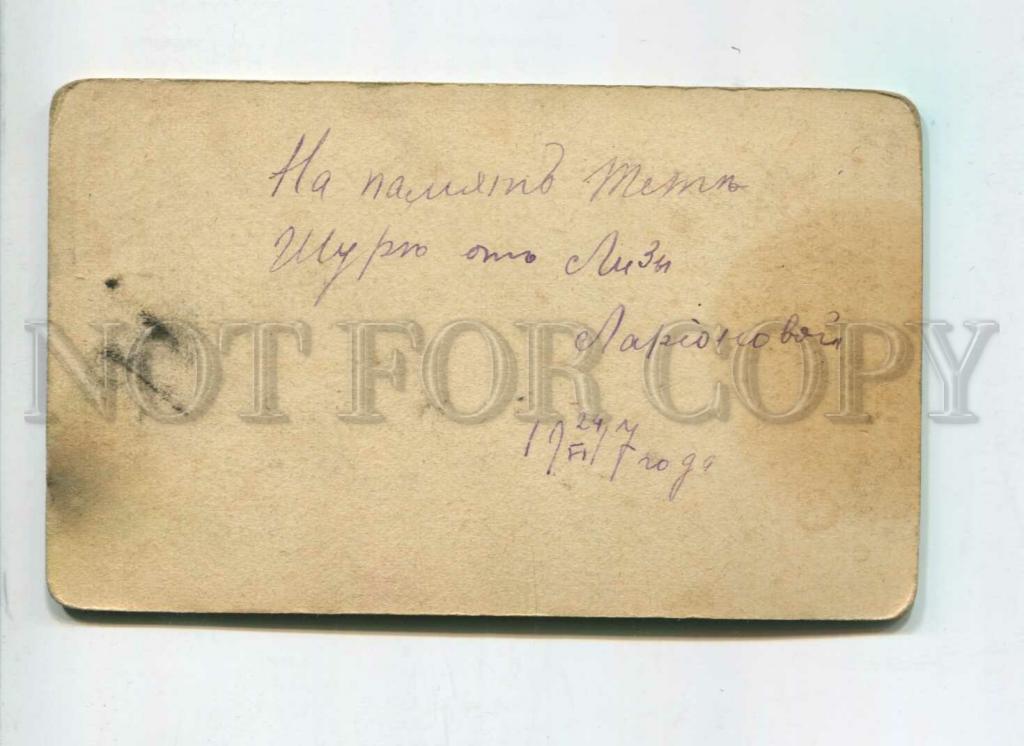 На память Тетѣ
Шурѣ отъ Лизы
Ларіоновой
NOT FOR COPY
19 24/VI 17 года